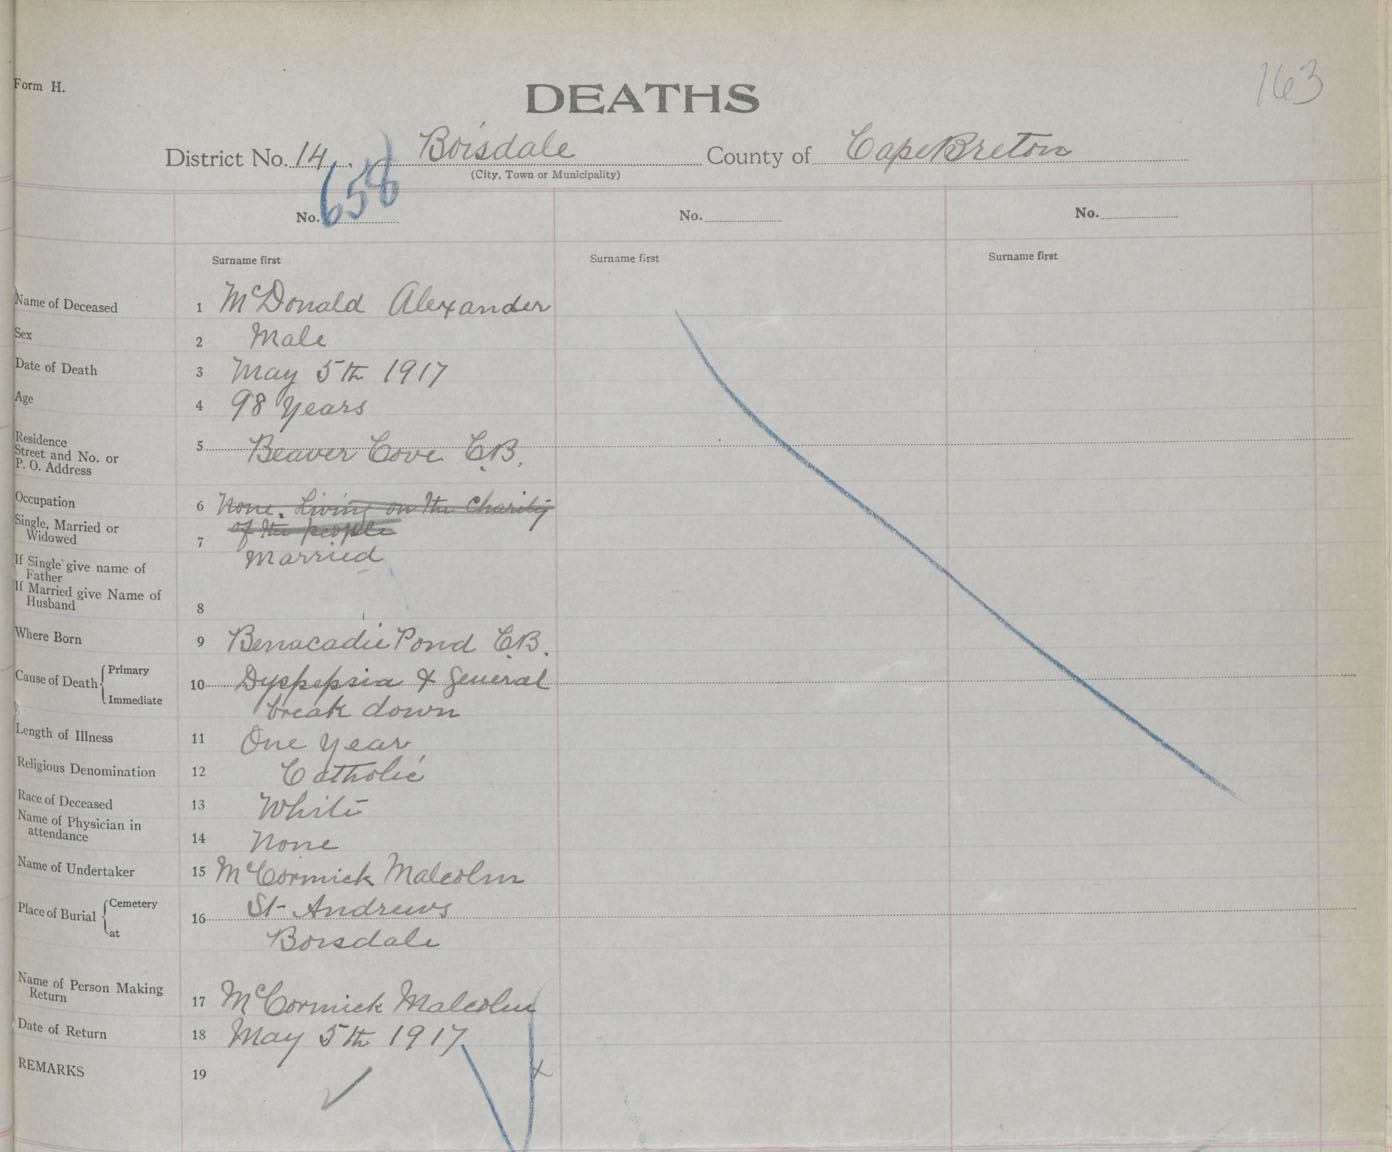 163
Form H.
DEATHS
District No. 14. Boisdale County of Cape Breton
(City, Town or Municipality)
No. 658 No. No.
Surname first Surname first Surname first
Name of Deceased 1 McDonald Alexander
Sex 2 Male
Date of Death 3 May 5th 1917
Age 4 98 Years
Residence
Street and No. or
P. O. Address
5 Beaver Cove C.B.
Occupation 6 None. Living on the Charity
of the people
Single, Married or
Widowed
7 Married
If Single give name of
Father
If Married give Name of
Husband
8
Where Born 9 Benacadie Pond C.B.
Cause of Death { Primary
Immediate
10 Dyspepsia & general
break down
Length of Illness 11 One year
Religious Denomination 12 Catholic
Race of Deceased 13 White
Name of Physician in
attendance
14 None
Name of Undertaker 15 McCormick Malcolm
Place of Burial { Cemetery
at
16 St Andrews
Boisdale
Name of Person Making
Return
17 McCormick Malcolm
Date of Return 18 May 5th 1917
REMARKS 19
x